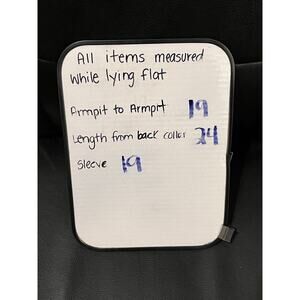 All items measured
while lying flat
Armpit to Armprt 19
Length from back collar 24
Sleeve 19